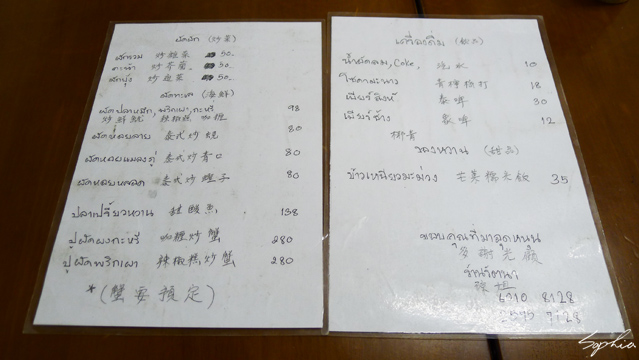 ผัดผัก (炒菜)
ผัดรวม 炒雜菜 50.
คะน้า 炒芥蘭 50.
ผัดบุ้ง 炒通菜 50.
ผัดทะเล (海鮮)
ผัดปลาหมึก, พริกเผา, กะหรี่ 98
炒鮮魷 辣椒膏 咖喱
ผัดหอยลาย 泰式炒蜆 80
ผัดหอยแมลงภู่ 泰式炒青口 80
ผัดหอยหลอด 泰式炒蟶子 80
ปลาเปรี้ยวหวาน 甜酸魚 138
ปูผัดผงกะหรี่ 咖喱炒蟹 280
ปูผัดพริกเผา 辣椒膏炒蟹 280
*(蟹要預定)
เครื่องดื่ม (飲品)
น้ำอัดลม, Coke, 汽水 10
โซดามะนาว 青檸梳打 18
เบียร์สิงห์ 泰啤 30
เบียร์ช้าง 12
椰青
ของหวาน (甜品)
ข้าวเหนียวมะม่วง 芒果糯米飯 35
ขอบคุณที่มาอุดหนุน
多謝光顧
6710 8128
Sophia